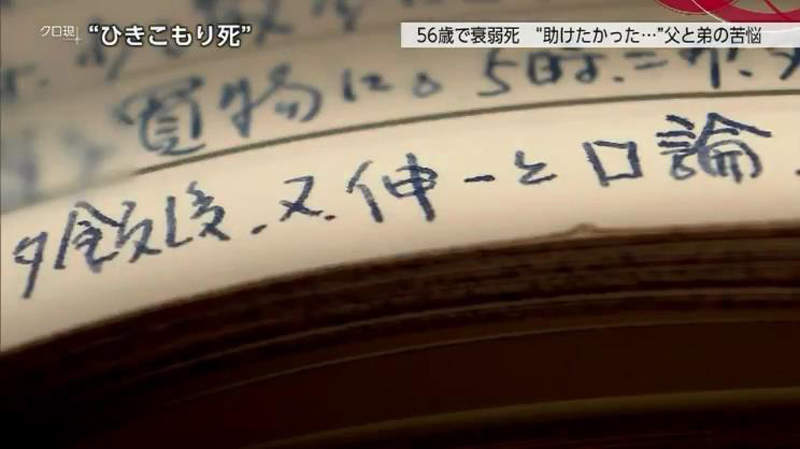 クロ現+
“ひきこもり死”
56歳で衰弱死 “助けたかった…”父と弟の苦悩
買物に。5時.
夕飯後.又.伸一と口論.